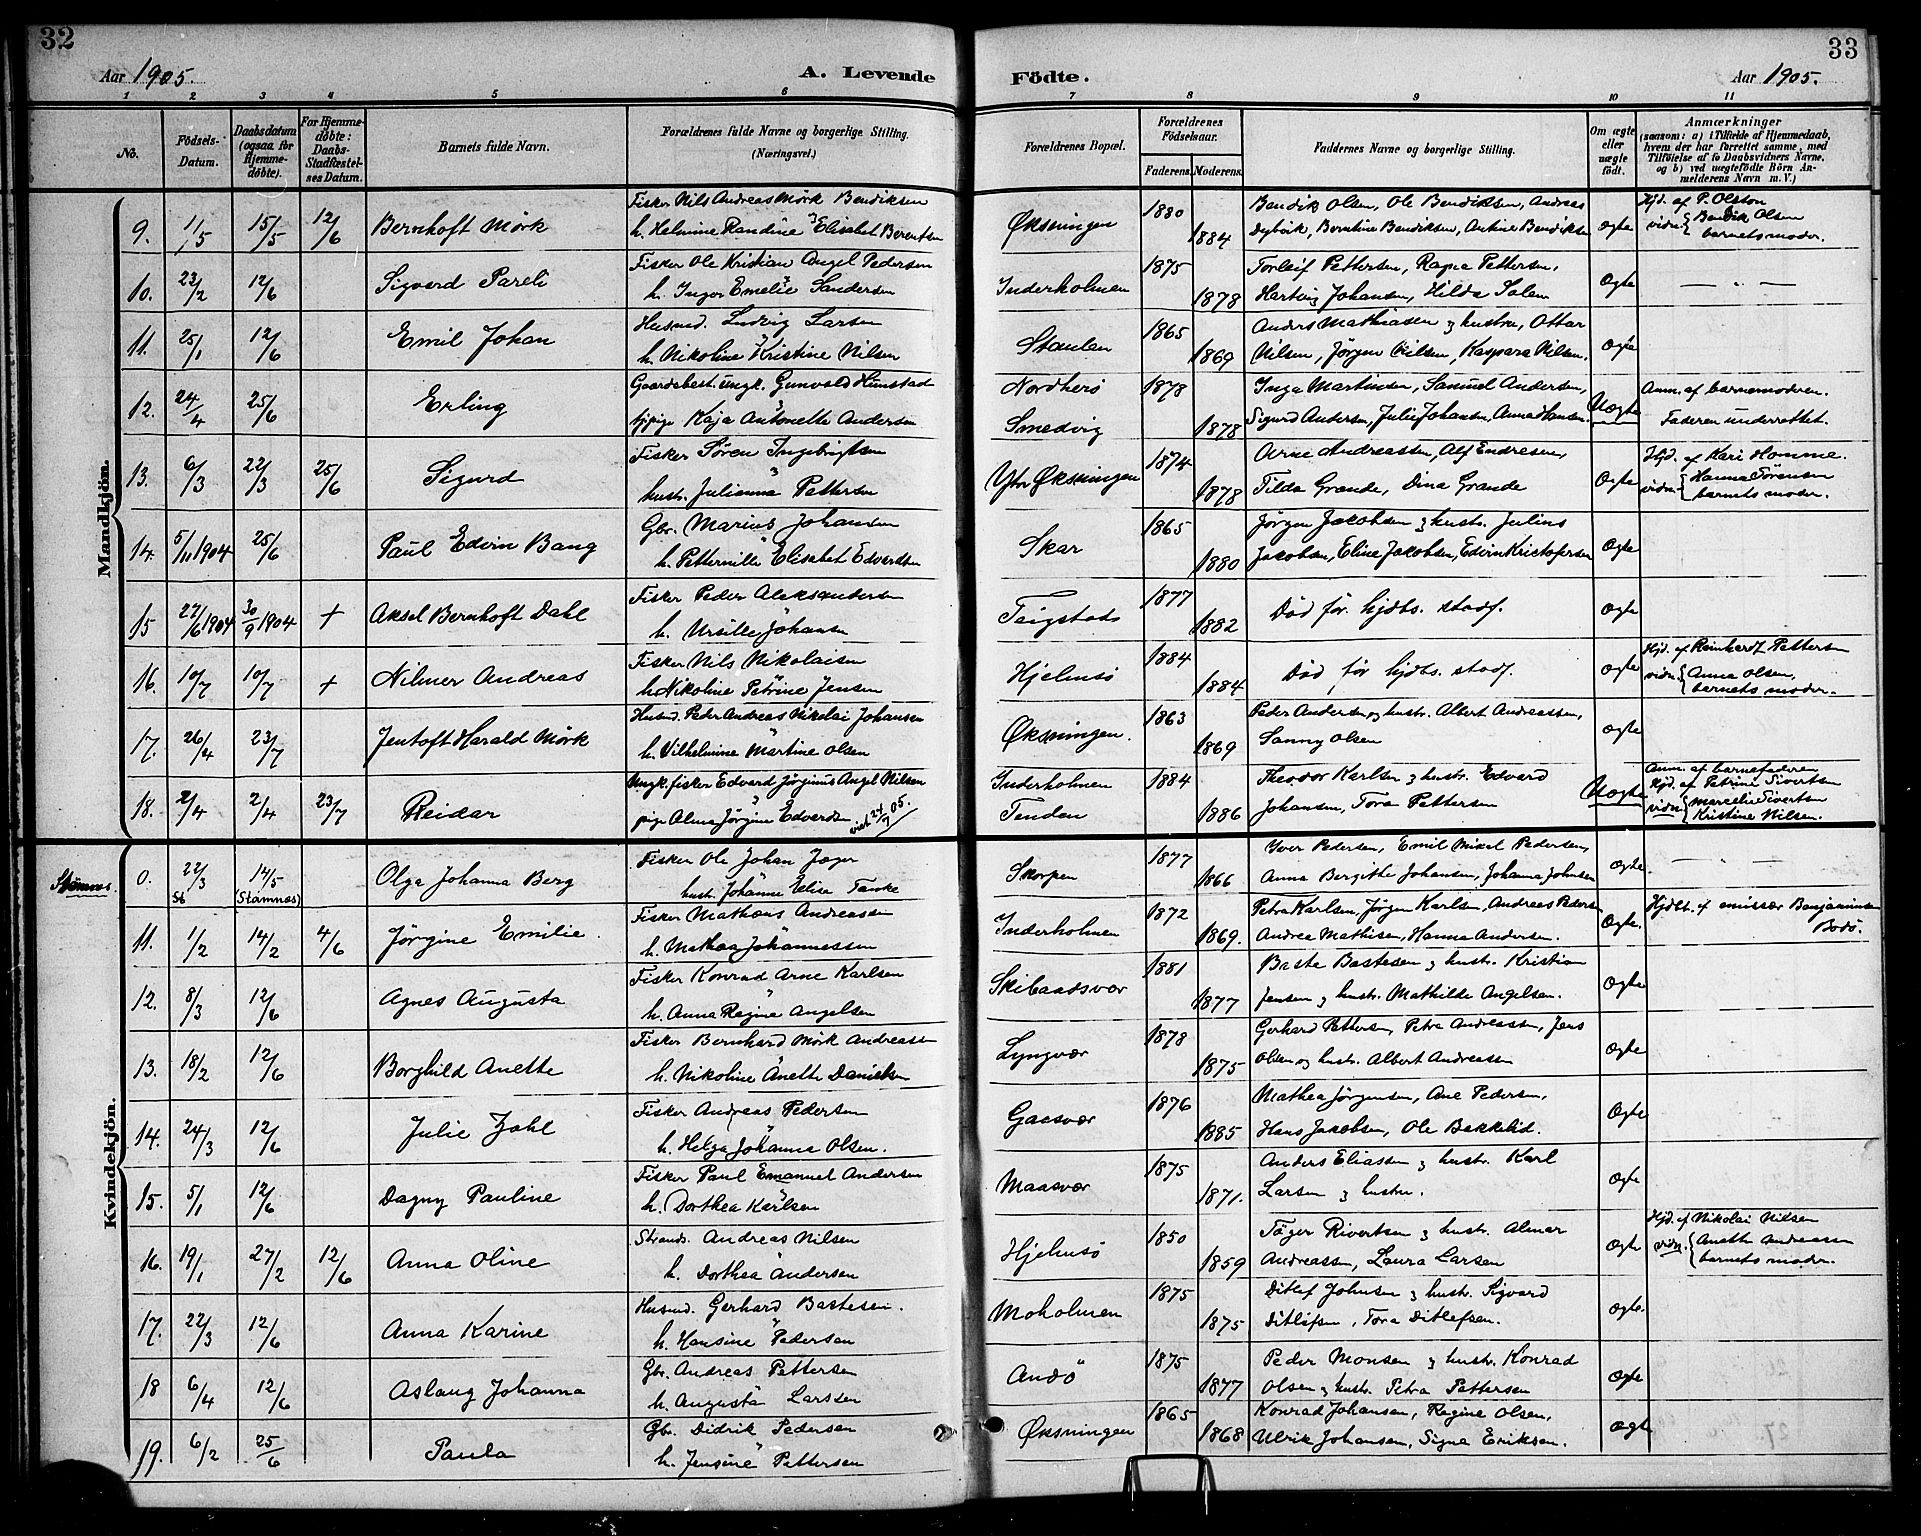 32
33
Aar 1905.
A. Levende
Födte.
Aar 1905.
1 2 3 4 5 6 7 8 9 10 11
No.
Födsels-Datum.
Daabsdatum (ogsaa for Hjemmedöbte).
For Hjemmedöbte: Daabs-Stadfæstelses Datum.
Barnets fulde Navn.
Forældrenes fulde Navne og borgerlige Stilling. (Næringsvei.)
Forældrenes Bopæl.
Forældrenes Födselsaar.
Faderens. Moderens.
Faddernes Navne og borgerlige Stilling.
Om ægte eller uægte födt.
Anmærkninger
(saasom: a) i Tilfælde af Hjemmedaab, hvem der har forrettet samme, med Tilföielse af to Daabsvidners Navne, og b) ved uægtefödte Börn Anmelderens Navn m. V.)
Mandkjön.
9. 11/5 15/5 12/6 Bernhoft Mörk
Fisker Nils Andreas Mörk Bendiksen
h. Helmine Randine Elisabet Berentsen
Øksningen 1880 1884
Bendik Olsen, Ole Bendiksen, Andreas
Dybvik, Berntine Bendiksen, Antine Bendiksen
Ægte
Hjd. af P. Olston
vidn. Bendik Olsen
barnets moder.
10. 23/2 12/6 Sigvard Pareli
Fisker Ole Kristian Angel Pedersen
h. Inger Emelie Sandersen
Inderholmen 1875 1878
Torleif Pettersen, Ragna Pettersen,
Hartvig Johansen, Hilda Solem
Ægte — " —
11. 25/1 12/6 Emil Johan
Husmd. Ludvig Larsen
h. Nikoline Kristine Nilsen
Staulen 1865 1869
Anders Mathiasen & hustru, Ottar
Nilsen, Jörgen Nilsen, Kaspara Nilsen.
Ægte
12. 24/4 25/6 Erling
Gaardsbest. ungk. Gunvald Hunstad
tjpige Kaja Antonette Andersen
Nordherö
Smedvig 1878 1878
Inga Martinsen, Samuel Andersen,
Sigurd Andersen, Julie Johansen, Anna Hansen
Uægte
Anm. af barnemoderen.
Faderen underrettet.
13. 6/3 22/3 25/6 Sigurd
Fisker Sören Ingebrigtsen
hustr. Julianna Pettersen
Ytre Øksningen 1874 1878
Arne Andreassen, Alf Endresen,
Tilda Grande, Dina Grande
Ægte
Hjd. af Kari Homme.
vidn. Hanna Sörensen
barnets moder.
14. 5/11 1904 25/6 Paul Edvin Bang
Gbr. Marius Johansen
h. Petternille Elisabet Edvardsen
Skar 1865 1880
Jörgen Jakobsen & hustr. Julius
Jakobsen, Eline Jakobsen, Edvin Kristofersen
Ægte
15 27/6 1904 30/9 1904 + Aksel Bernhoft Dahl
Fisker Peder Aleksandersen
h. Ursille Johansen
Teigstads 1877 1882
Död för hjdbs. stadf.
Ægte
16. 10/7 10/7 + Nilmer Andreas
Fisker Nils Nikolaisen
h. Nikoline Petrine Jensen
Hjelmsö 1884 1884
Död för hjdbs. stadf.
Ægte
Hjd. af Reinhardt Pettersen
vidn. Anna Olsen,
barnets moder.
17. 26/4 23/7 Jentoft Harald Mörk
Husmd. Peder Andreas Nikolai Johansen
h. Vilhelmine Martine Olsen
Øksningen. 1863 1869
Peder Andersen og hustr. Albert Andreassen,
Sanny Olsen
Ægte
18. 2/4 2/4 23/7 Reidar
Ungk. fisker Edvard Jörginus Angel Nilsen
pige Alma Jörgine Edvardsen viet 24/9 05.
Inderholmen
Tenden 1884 1886
Theodor Karlsen & hustr. Edvard
Johansen, Tora Pettersen
Uægte
Anm. af barnefaderen
Hjd. af Petrine Sivertsen
vidn. Marcelie Sivertsen
Kristine Nilsen.
Kvindekjön.
Stamnes. 0. 22/3 St 14/5 (Stamnæs) Olga Johanna Berg
Fisker Ole Johan Jæger
hustr. Johanna Elisa Tanke
Skorpen 1877 1866
Iver Pedersen, Emil Mikal Pedersen,
Anna Bergithe Johansen, Johanna Johnsen
Ægte. — " —
11. 1/2 14/2 4/6 Jörgine Emilie.
Fisker Mathæus Andreassen
h. Mathea Johannessen
Inderholmen 1872 1869.
Petra Karlsen, Jörgen Karlsen, Andreas Pedersen
Andrea Mathisen, Hanna Andersen.
Ægte.
Hjdbt. af emissær Benjaminsen
Bodö.
12. 8/3 12/6 Agnes Augusta
Fisker Konrad Arne Karlsen
h. Anna Regine Angelsen
Skibaadsvær 1881 1877
Baste Bastesen & hustr. Kristian
Jensen & hustr. Mathilde Angelsen.
Ægte
13. 18/2 12/6 Borghild Anette
Fisker Bernhard Mörk Andreassen
h. Nikoline Anette Danielsen
Lyngvær 1878 1875
Gerhard Pettersen, Petra Andreassen, Jens
Olsen og hustr. Albert Andreassen
Ægte
14. 24/3 12/6 Julie Zahl
Fisker Andreas Pedersen
h. Helga Johanna Olsen.
Gaasvær 1876 1885
Mathea Jörgensen, Ane Pedersen,
Hans Jakobsen, Ole Bakkelid.
Ægte
15. 5/1 12/6 Dagny Pauline
Fisker Paul Emanuel Andersen
h. Dorthea Karlsen
Maasvær 1875 1871.
Anders Eliassen & hustr. Karl
Larsen & hustru.
Ægte
16. 19/1 27/2 12/6 Anna Oline
Strands. Andreas Nilsen
h. Dorthea Andersen
Hjelmsö 1850 1859
Töger Sivertsen & hustr. Almar
Andreassen, Laura Larsen
Ægte
Hjd. af Nikolai Nilsen
vidn. Anette Andreassen
barnets moder.
17. 22/3 12/6 Anna Karine
Husmd. Gerhard Bastesen.
h. Hansine Pedersen
Moholmen 1875 1875
Ditlef Johnsen & hustr. Sigvard
Ditlefsen, Tora Ditlefsen.
Ægte.
18 6/4 12/6 Aslaug Johanna
Gbr. Andreas Pettersen
h. Augusta Larsen
Andö 1875 1877
Peder Monsen & hustr. Konrad
Olsen & hustr. Petra Pettersen
Ægte
19. 6/2 25/6 Paula
Gbr. Didrik Pedersen
h. Jensine Pettersen
Øksningen 1865 1868
Konrad Johansen, Regine Olsen,
Ulrik Johansen, Signe Eriksen.
Ægte